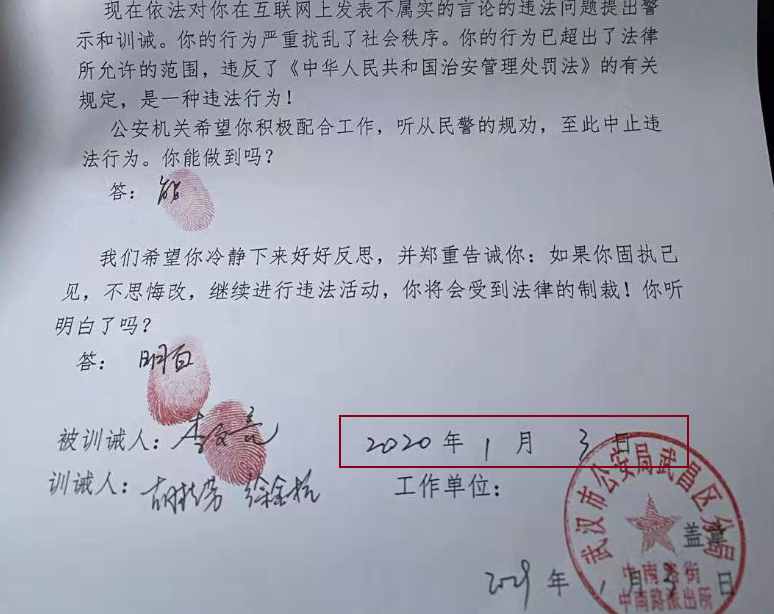 现在依法对你在互联网上发表不属实的言论的违法问题提出警
示和训诫。你的行为严重扰乱了社会秩序。你的行为已超出了法律
所允许的范围，违反了《中华人民共和国治安管理处罚法》的有关
规定，是一种违法行为！
公安机关希望你积极配合工作，听从民警的规劝，至此中止违
法行为。你能做到吗？
答：能
我们希望你冷静下来好好反思，并郑重告诫你：如果你固执己
见，不思悔改，继续进行违法活动，你将会受到法律的制裁！你听
明白了吗？
答：明白
被训诫人：李文亮 2020年1月3日
训诫人： 工作单位：
武汉市公安局武昌区分局
盖章
中南路街
中南路派出所
年1月3日